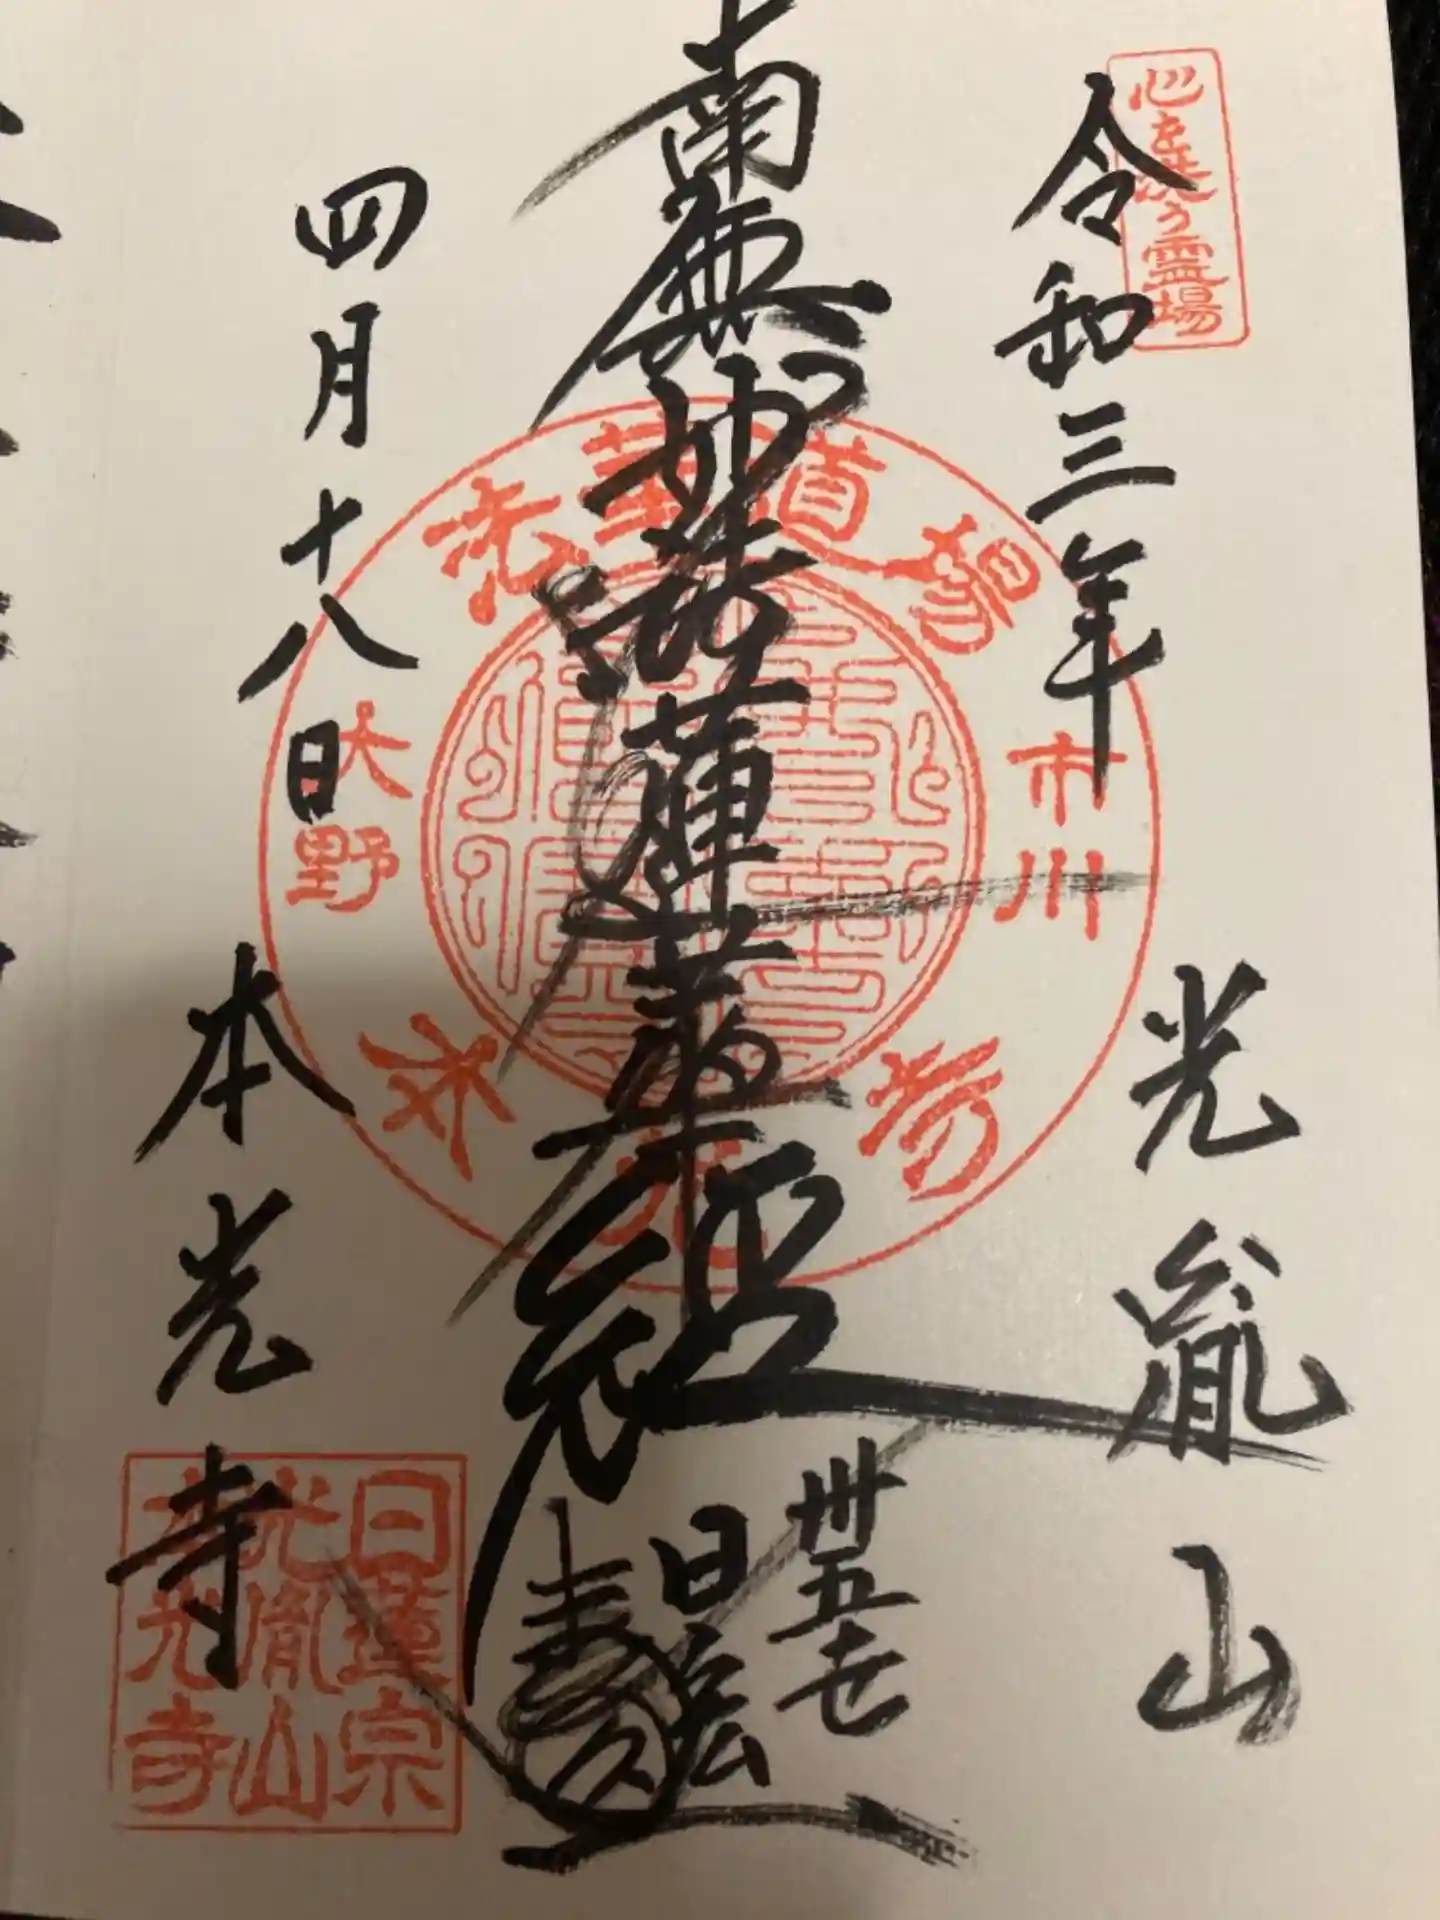 心を洗う霊場
令和三年
光胤山
南無妙法蓮華経
卅五世
日宏
四月十八日
本光寺
市川
大野
日蓮宗
光胤山
本光寺